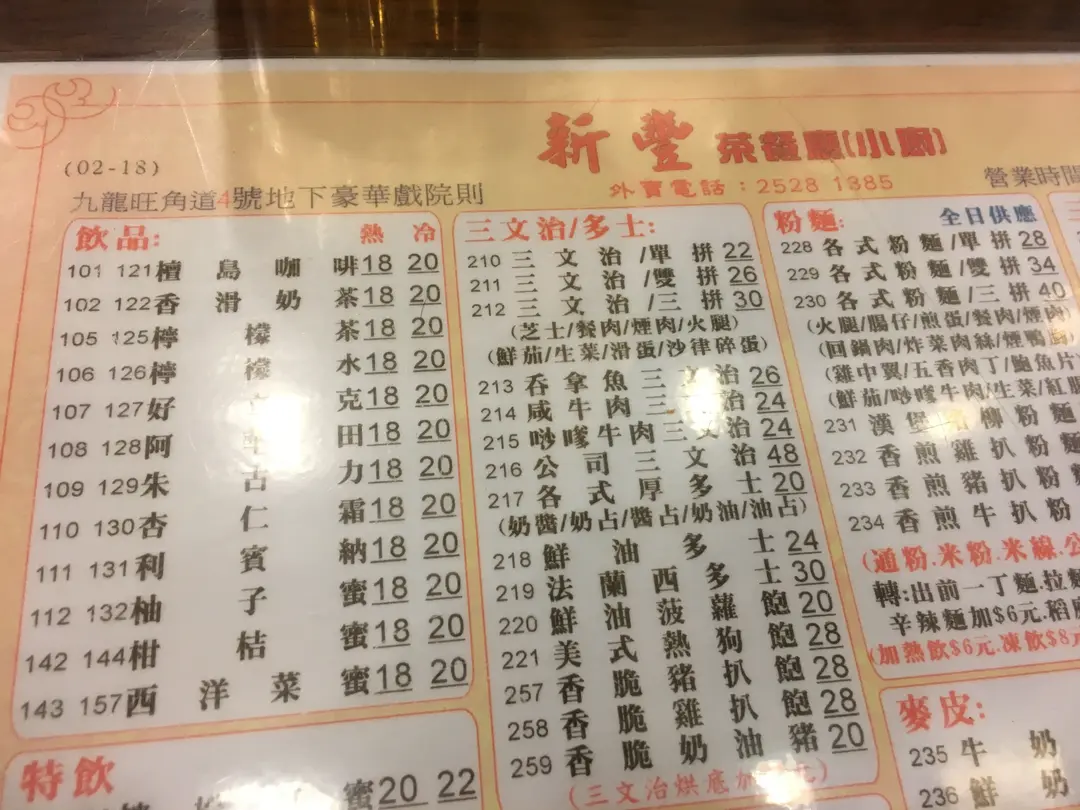 新豐茶餐廳(小廚)
(02-18)
外賣電話：2528 1385
九龍旺角道4號地下豪華戲院則
營業時間
飲品: 熱 冷
101 121 檀島咖啡 18 20
102 122 香滑奶茶 18 20
105 125 檸檬茶 18 20
106 126 檸檬水 18 20
107 127 好 克 18 20
108 128 阿華田 18 20
109 129 朱古力 18 20
110 130 杏仁霜 18 20
111 131 利賓納 18 20
112 132 柚子蜜 18 20
142 144 柑桔蜜 18 20
143 157 西洋菜蜜 18 20
特飲
蜜 20 22
三文治/多士:
210 三文治/單拼 22
211 三文治/雙拼 26
212 三文治/三拼 30
(芝士/餐肉/煙肉/火腿)
(鮮茄/生菜/滑蛋/沙律碎蛋)
213 吞拿魚三文治 26
214 咸牛肉三文治 24
215 嘇嗲牛肉三文治 24
216 公司三文治 48
217 各式厚多士 20
(奶醬/奶占/醬占/奶油/油占)
218 鮮油多士 24
219 法蘭西多士 30
220 鮮油菠蘿飽 20
221 美式熱狗飽 28
257 香脆豬扒飽 28
258 香脆雞扒飽 28
259 香脆奶油豬 20
(三文治烘底加
粉麵: 全日供應
228 各式粉麵/單拼 28
229 各式粉麵/雙拼 34
230 各式粉麵/三拼 40
(火腿/腸仔/煎蛋/餐肉/煙肉
(回鍋肉/炸菜肉絲/煙鴨
(雞中翼/五香肉丁/鮑魚片
(鮮茄/嘇嗲牛肉/生菜/紅腸
231 漢堡 柳粉麵
232 香煎雞扒粉麵
233 香煎豬扒粉麵
234 香煎牛扒粉
(通粉.米粉.米線.公
轉:出前一丁麵.拉麵
辛辣麵加$6元.稻庭
(加熱飲$6元.凍飲$8元
麥皮:
235 牛奶
236 鮮奶